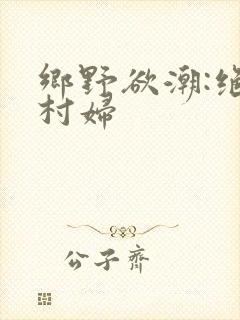 鄉野欲潮:絕
村婦
公子齊